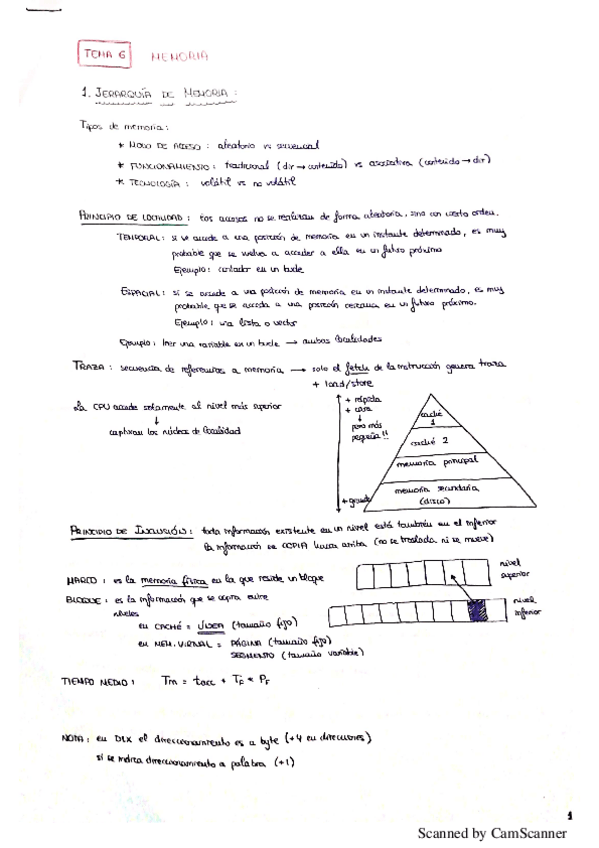 TEMA 6 MEMORIA
1. JERARQUÍA DE MEMORIA:
Tipos de memoria:
* MODO DE ACCESO: aleatorio vs secuencial
* FUNCIONAMIENTO: tradicional (dir → contenido) vs asociativa (contenido → dir)
* TECNOLOGÍA: volátil vs no volátil
PRINCIPIO DE LOCALIDAD: Los accesos no se realizan de forma aleatoria, sino con cierto orden.
TEMPORAL: si se accede a una posición de memoria en un instante determinado, es muy
probable que se vuelva a acceder a ella en un futuro próximo
Ejemplo: contador en un bucle
ESPACIAL: si se accede a una posición de memoria en un instante determinado, es muy
probable que se acceda a una posición cercana en un futuro próximo.
Ejemplo: una lista o vector
Ejemplo: leer una variable en un bucle → ambas localidades
TRAZA: secuencia de referencias a memoria → solo el fetch de la instrucción genera traza
+ load/store
La CPU accede solamente al nivel más superior
↓
capturan los núcleos de localidad
+ rápida
+ cara
↓
pero más
pequeña!!
+ grande
caché
1
caché 2
memoria principal
memoria secundaria
(disco)
PRINCIPIO DE INCLUSIÓN: toda información existente en un nivel está también en el inferior
la información se COPIA hacia arriba (no se traslada ni se mueve)
MARCO: es la memoria física en la que reside un bloque
BLOQUE: es la información que se copia entre
niveles
en CACHÉ = LÍNEA (tamaño fijo)
en MEM. VIRTUAL = PÁGINA (tamaño fijo)
SEGMENTO (tamaño variable)
nivel
superior
nivel
inferior
TIEMPO MEDIO: Tm = tacc + TF * PF
NOTA: en DLX el direccionamiento es a byte (+4 en direcciones)
si se indica direccionamiento a palabra (+1)
1
Scanned by CamScanner